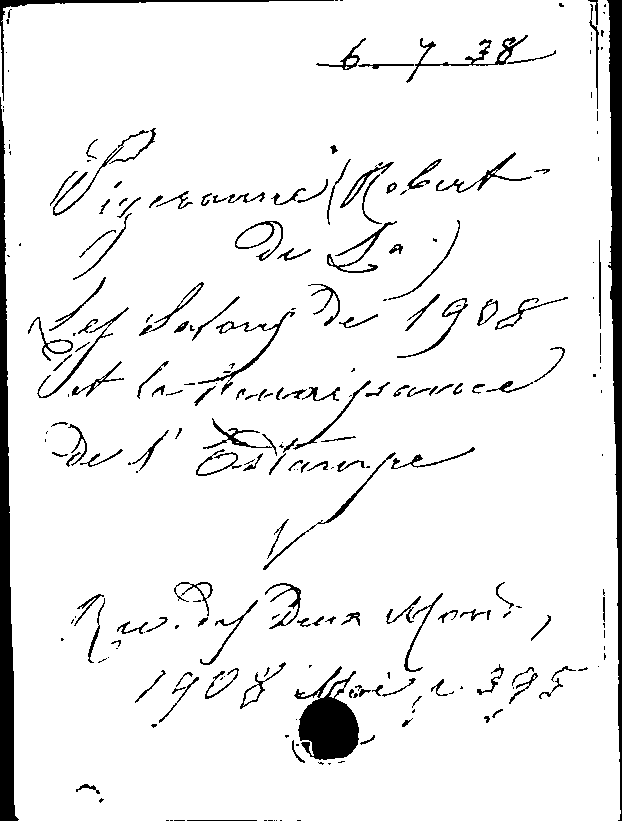 6. 7. 38
Sizeranne (Robert
de La.)
Les Salons de 1908
et la Renaissance
de l'Estampe
Rev. des Deux Mond,
1908 Mai, p. 395